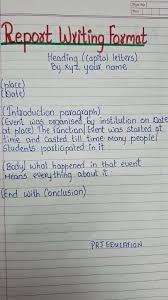 Report Writing Format
Heading (capital letters)
By xyz your name
(place)
(Date)
(Introduction paragraph)
(Event was organised by institution on Date
at place) The function/Event was started at
time and lasted till time many people/
Students participated in it
(Body) what happened in that event
Means everything about it
(End with Conclusion)
PRJ EDUCATION